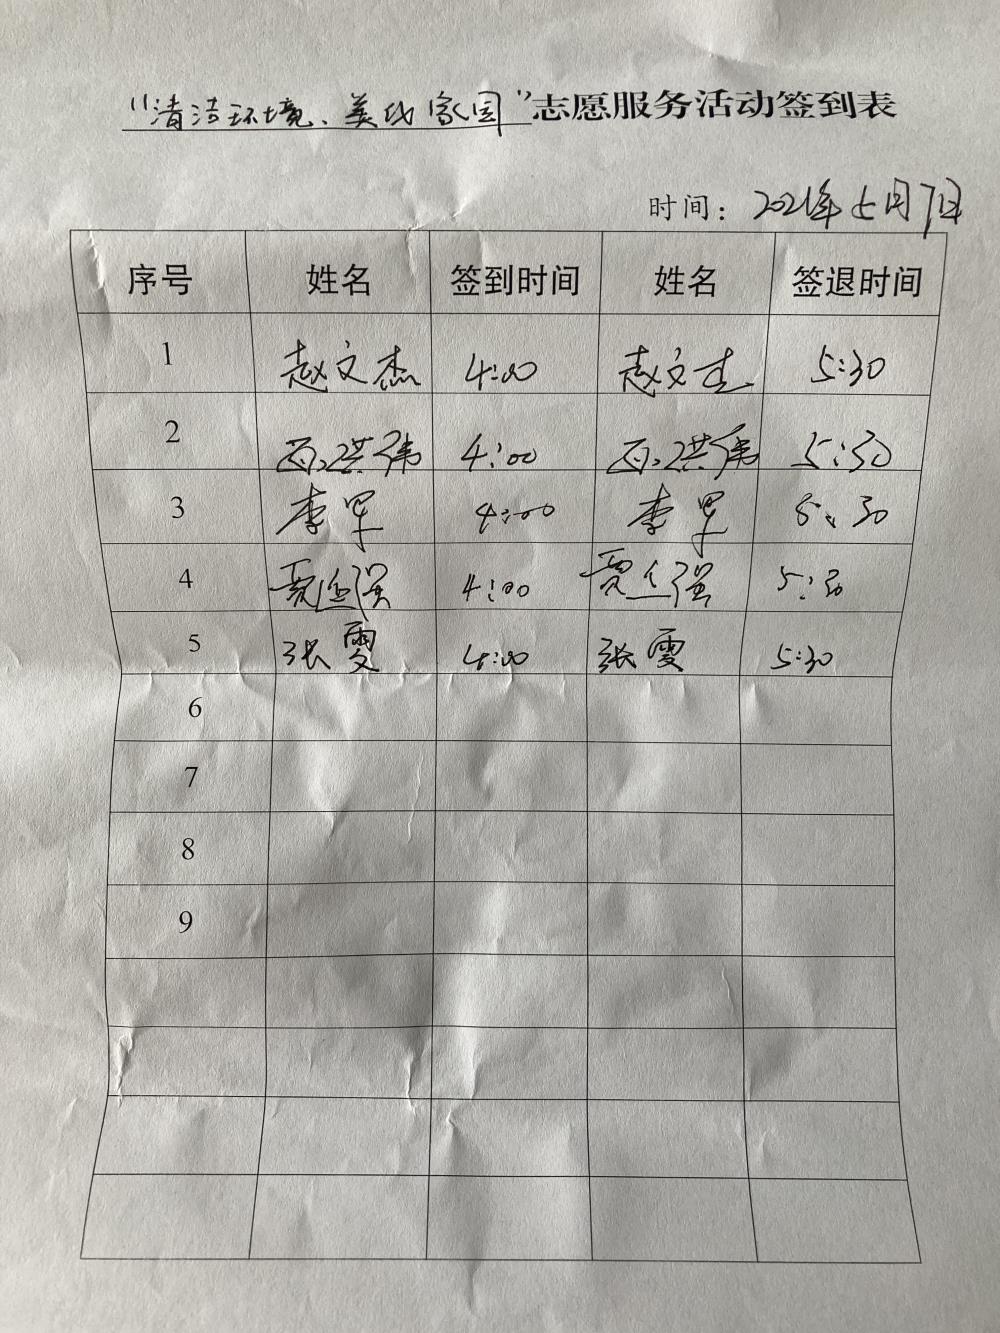 “清洁环境、美化家园”志愿服务活动签到表
时间：2021年5月7日
序号 姓名 签到时间 姓名 签退时间
1 赵文杰 4:00 赵文杰 5:30
2 洪伟 4:00 洪伟 5:30
3 李军 4:00 李军 5:30
4 贾强 4:00 贾强 5:30
5 张雯 4:00 张雯 5:30
6
7
8
9